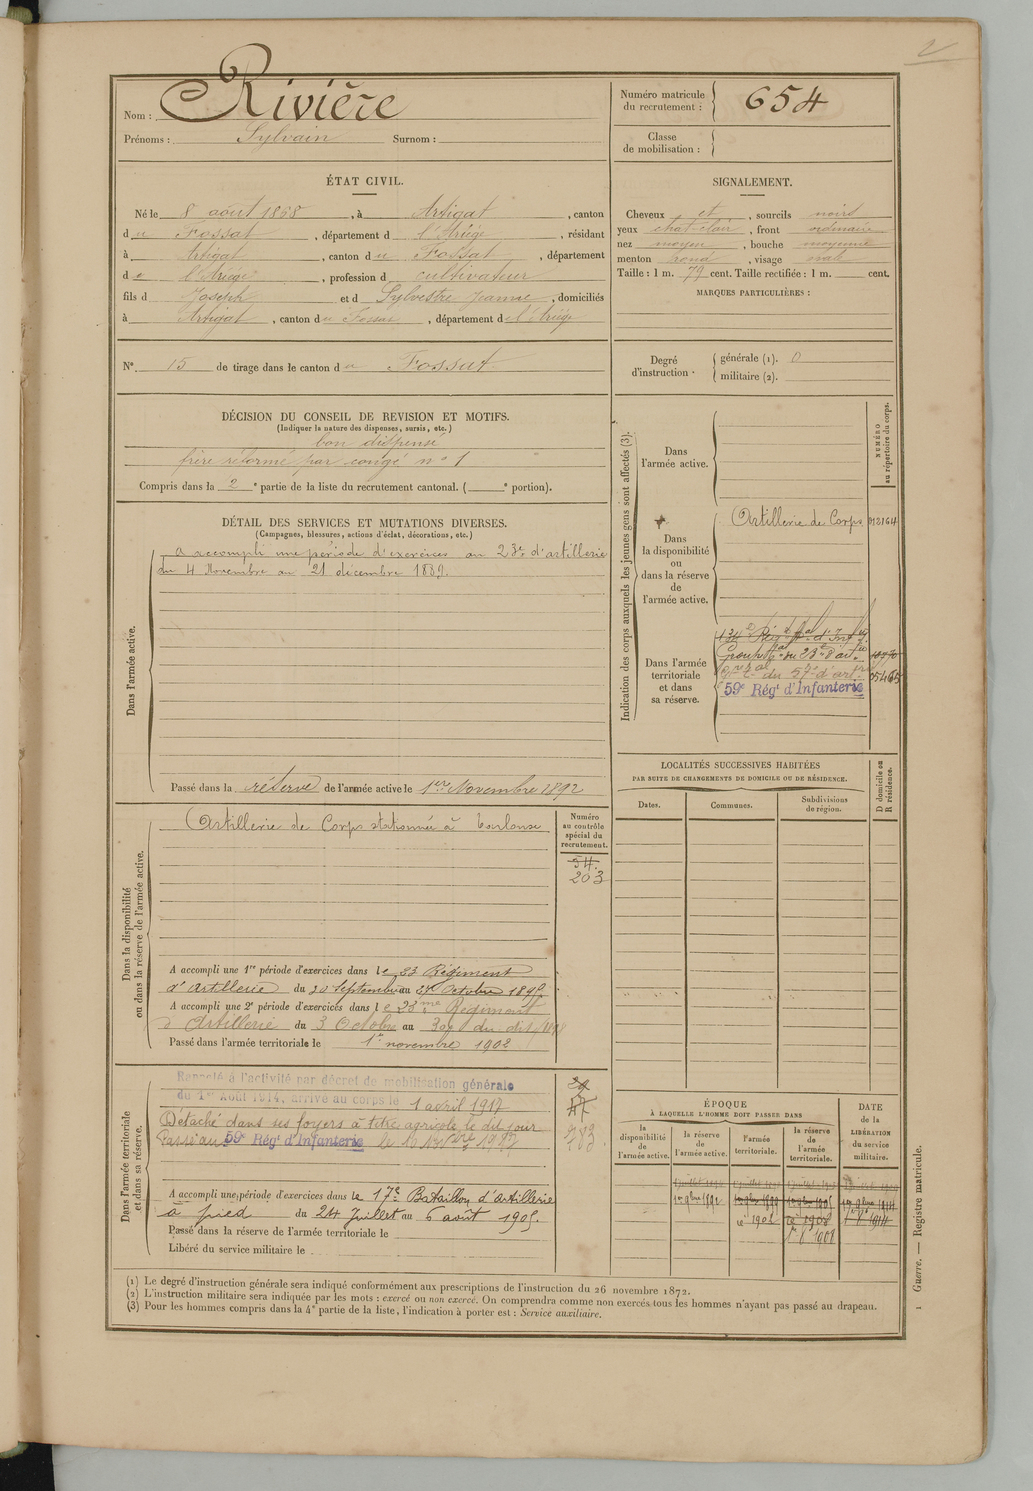 2
Nom : Rivière
Prénoms : Sylvain Surnom :
Numéro matricule
du recrutement : 654
Classe
de mobilisation :
ÉTAT CIVIL.
Né le 8 août 1868, à Artigat, canton
du Fossat, département d l'Ariége, résidant
à Artigat, canton du Fossat, département
de l'Ariége, profession d cultivateur
fils d Joseph et d Sylvestre Jeanne, domiciliés
à Artigat, canton du Fossat, département de l'Ariége
SIGNALEMENT.
Cheveux et, sourcils noirs
yeux chat-clair, front ordinaire
nez moyen, bouche moyenne
menton rond, visage ovale
Taille : 1 m. 79 cent. Taille rectifiée : 1 m. cent.
MARQUES PARTICULIÈRES :
N° 15 de tirage dans le canton du Fossat
Degré
d'instruction
générale (1). 0
militaire (2).
DÉCISION DU CONSEIL DE REVISION ET MOTIFS.
(Indiquer la nature des dispenses, sursis, etc.)
bon dispensé
frère réformé par congé n° 1
Compris dans la 2e partie de la liste du recrutement cantonal. ( e portion).
DÉTAIL DES SERVICES ET MUTATIONS DIVERSES.
(Campagnes, blessures, actions d'éclat, décorations, etc.)
Dans l'armée active.
a accompli une période d'exercices au 23e d'artillerie
du 4 Novembre au 21 décembre 1889.
Passé dans la réserve de l'armée active le 1er Novembre 1892
Indication des corps auxquels les jeunes gens sont affectés (3).
NUMÉRO
au répertoire du corps.
Dans
l'armée active.
Dans
la disponibilité
ou
dans la réserve
de
l'armée active.
Artillerie de Corps 012164
Dans l'armée
territoriale
et dans
sa réserve.
59e Régt d'Infanterie
LOCALITÉS SUCCESSIVES HABITÉES
PAR SUITE DE CHANGEMENTS DE DOMICILE OU DE RÉSIDENCE.
Dates.
Communes.
Subdivisions
de région.
D domicile ou
R résidence.
Dans la disponibilité
ou dans la réserve de l'armée active.
Artillerie de Corps stationnée à Toulouse
Numéro
au contrôle
spécial du
recrutement.
54.
203
A accompli une 1re période d'exercices dans le 23 Régiment
d'Artillerie du 20 Septembre au 27 Octobre 1895
A accompli une 2e période d'exercices dans le 23me Régiment
d'Artillerie du 3 Octobre au 30 du dit 1898
Passé dans l'armée territoriale le 1er novembre 1902
Dans l'armée territoriale
et dans sa réserve.
Rappelé à l'activité par décret de mobilisation générale
du 1er Août 1914, arrivé au corps le 1 avril 1917
Détaché dans ses foyers à titre agricole le dit jour
Passé au 59e Régt d'Infanterie le 1917
A accompli une période d'exercices dans le 17e Bataillon d'Artillerie
à pied du 24 Juillet au 6 août 1905.
Passé dans la réserve de l'armée territoriale le
Libéré du service militaire le
ÉPOQUE
À LAQUELLE L'HOMME DOIT PASSER DANS
la
disponibilité
de
l'armée active.
la réserve
de
l'armée active.
l'armée
territoriale.
la réserve
de
l'armée
territoriale.
DATE
de la
LIBÉRATION
du service
militaire.
(1) Le degré d'instruction générale sera indiqué conformément aux prescriptions de l'instruction du 26 novembre 1872.
(2) L'instruction militaire sera indiquée par les mots : exercé ou non exercé. On comprendra comme non exercés tous les hommes n'ayant pas passé au drapeau.
(3) Pour les hommes compris dans la 4e partie de la liste, l'indication à porter est : Service auxiliaire.
1 Guerre. — Registre matricule.